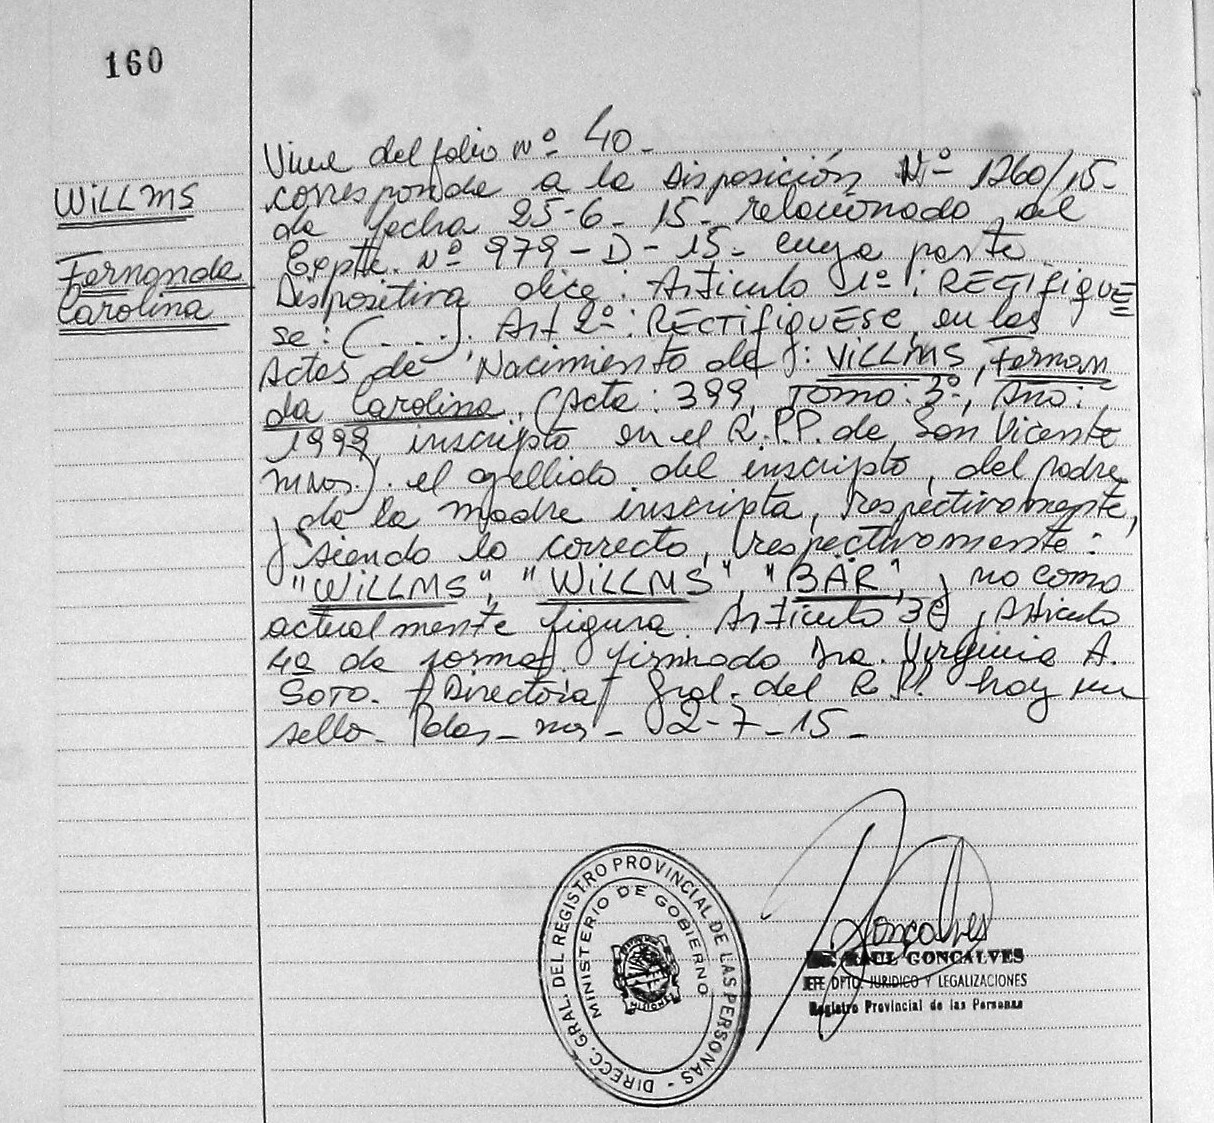 160
WiLLMS
Fernanda
Carolina
Viene del folio Nº 40.-
corresponde a la Disposición Nº 1260/15-
de fecha 25-6-15- relacionado al
Expte. Nº 979-D-15- cuya parte
Dispositiva dice: Articulo 1º: RECTIFIQUE
se: (....). Art 2º: RECTIFIQUESE, en las
Actas de Nacimiento de: ViLLMS, Fernan
da Carolina, (Acta: 399, Tomo: 3º, Año:
1999, inscripto en el R.P.P. de San Vicente
mnes.). el apellido del inscripto, del padre
y de la madre inscripta, respectivamente,
siendo lo correcto, respectivamente:
"WiLLMS", "WiLLMS" "BÄR", y no como
actualmente figura. Articulo 3º, Articulo
4º de forma. firmado Dra. Virginia A.
Soto. Directora Gral. del R.P.P. hay un
sello. Pdas-mns- 02-7-15-
DIRECC. GRAL DEL REGISTRO PROVINCIAL DE LAS PERSONAS -
MINISTERIO DE GOBIERNO
MISIONES
Goncalves
RAUL GONCALVES
JEFE DPTO. JURIDICO Y LEGALIZACIONES
Registro Provincial de las Personas